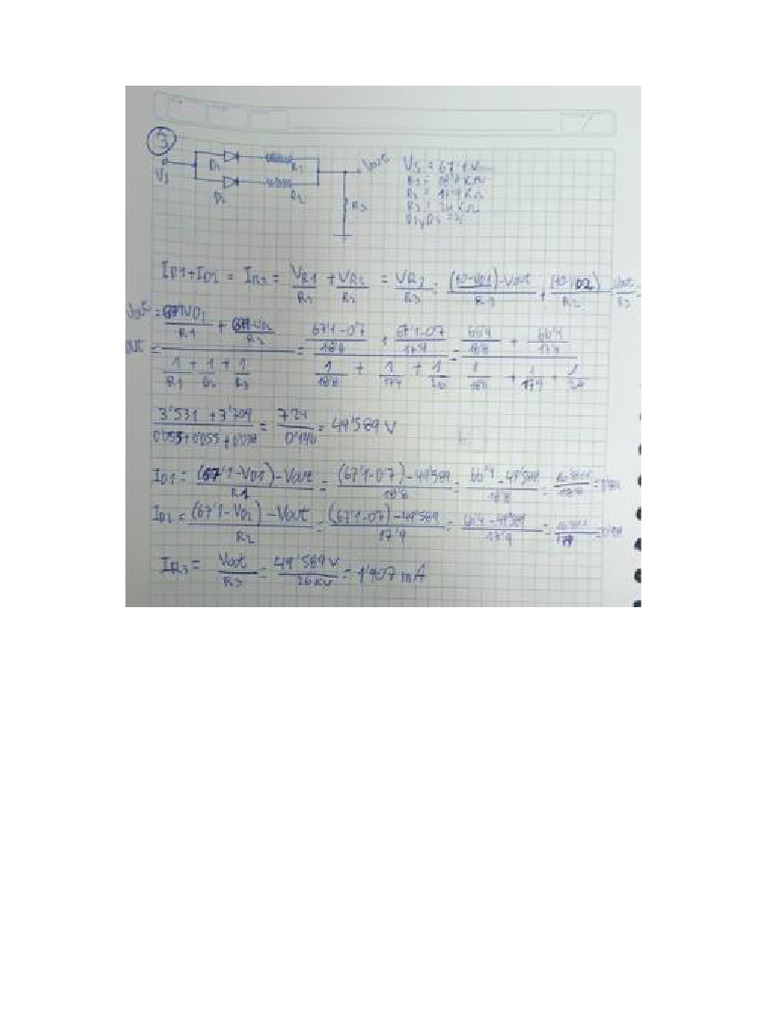 3
D1 R1 Vout
VS D2 R2 R3
VS = 67'1V
R1 = 18'8 KΩ
R2 = 17'9 KΩ
R3 = 26 KΩ
ID1 + ID2 = IR3 = VR1/R1 + VR2/R2 = VR3/R3 = (10-VD1)-Vout/R1 + (10-VD2)/R2 = Vout/R3
Vout = 67'1-VD1/R1 + 67'1-VD2/R2
OUT = / 1/R1 + 1/R2 + 1/R3 = 67'1-0'7/18'8 + 67'1-0'7/17'9 / 1/18'8 + 1/17'9 + 1/26 = 66'4/18'8 + 66'4/17'9 / 1/18'8 + 1/17'9 + 1/26
3'531 + 3'709 / 0'053+0'055+0'038 = 7'24/0'146 = 49'589 V
ID1 = (67'1-VD1)-Vout/R1 = (67'1-0'7)-49'589/18'8 = 66'4-49'589/18'8
ID2 = (67'1-VD2)-Vout/R2 = (67'1-0'7)-49'589/17'9 = 66'4-49'589/17'9
IR3 = Vout/R3 = 49'589 V/26 KΩ = 1'907 mA